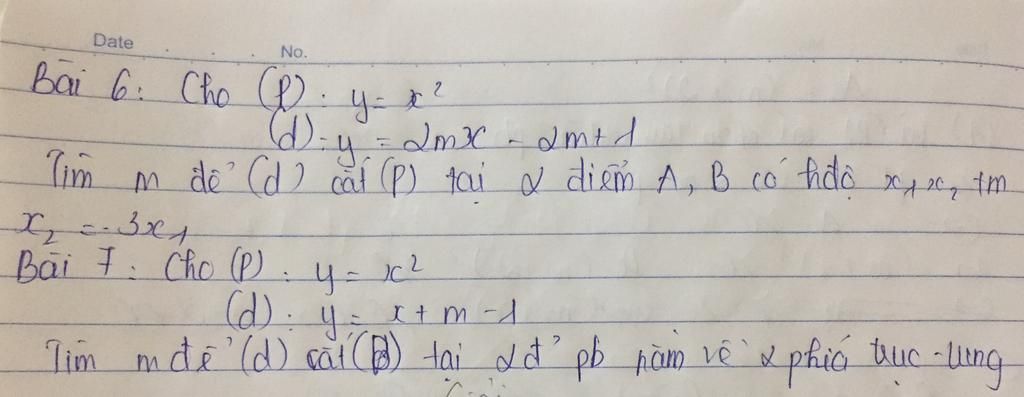 Date No.
Bài 6: Cho (P): y = x²
(d): y = 2mx - 2m + 1
Tìm m để (d) cắt (P) tại 2 điểm A, B có hđộ x₁, x₂ tm
x₂ = -3x₁
Bài 7: Cho (P): y = x²
(d): y = x + m - 1
Tìm m để (d) cắt (P) tại 2đ' pb nằm về 2 phía trục tung